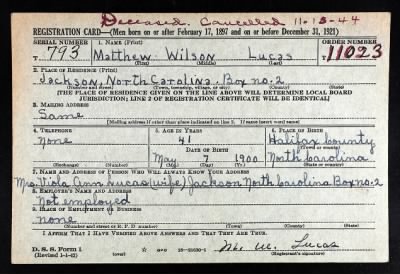 Deceased. Cancelled 11-13-44
REGISTRATION CARD—(Men born on or after February 17, 1897 and on or before December 31, 1921)
SERIAL NUMBER 1. NAME (Print) ORDER NUMBER
T 793 Matthew Wilson Lucas 11023
(First) (Middle) (Last)
2. PLACE OF RESIDENCE (Print)
Jackson, North Carolina. Box no. 2
(Number and street) (Town, township, village, or city) (County) (State)
[THE PLACE OF RESIDENCE GIVEN ON THE LINE ABOVE WILL DETERMINE LOCAL BOARD
JURISDICTION; LINE 2 OF REGISTRATION CERTIFICATE WILL BE IDENTICAL]
3. MAILING ADDRESS
Same
[Mailing address if other than place indicated on line 2. If same insert word same]
4. TELEPHONE 5. AGE IN YEARS 6. PLACE OF BIRTH
None 41 Halifax County
DATE OF BIRTH (Town or county)
May 7 1900 North Carolina
(Exchange) (Number) (Mo.) (Day) (Yr.) (State or country)
7. NAME AND ADDRESS OF PERSON WHO WILL ALWAYS KNOW YOUR ADDRESS
Mrs. Viola Ann Lucas (wife) Jackson North Carolina Box no. 2
8. EMPLOYER'S NAME AND ADDRESS
Not employed
9. PLACE OF EMPLOYMENT OR BUSINESS
none
(Number and street or R. F. D. number) (Town) (County) (State)
I AFFIRM THAT I HAVE VERIFIED ABOVE ANSWERS AND THAT THEY ARE TRUE.
D. S. S. Form 1
(Revised 1-1-42) Lucas
(Registrant's signature)